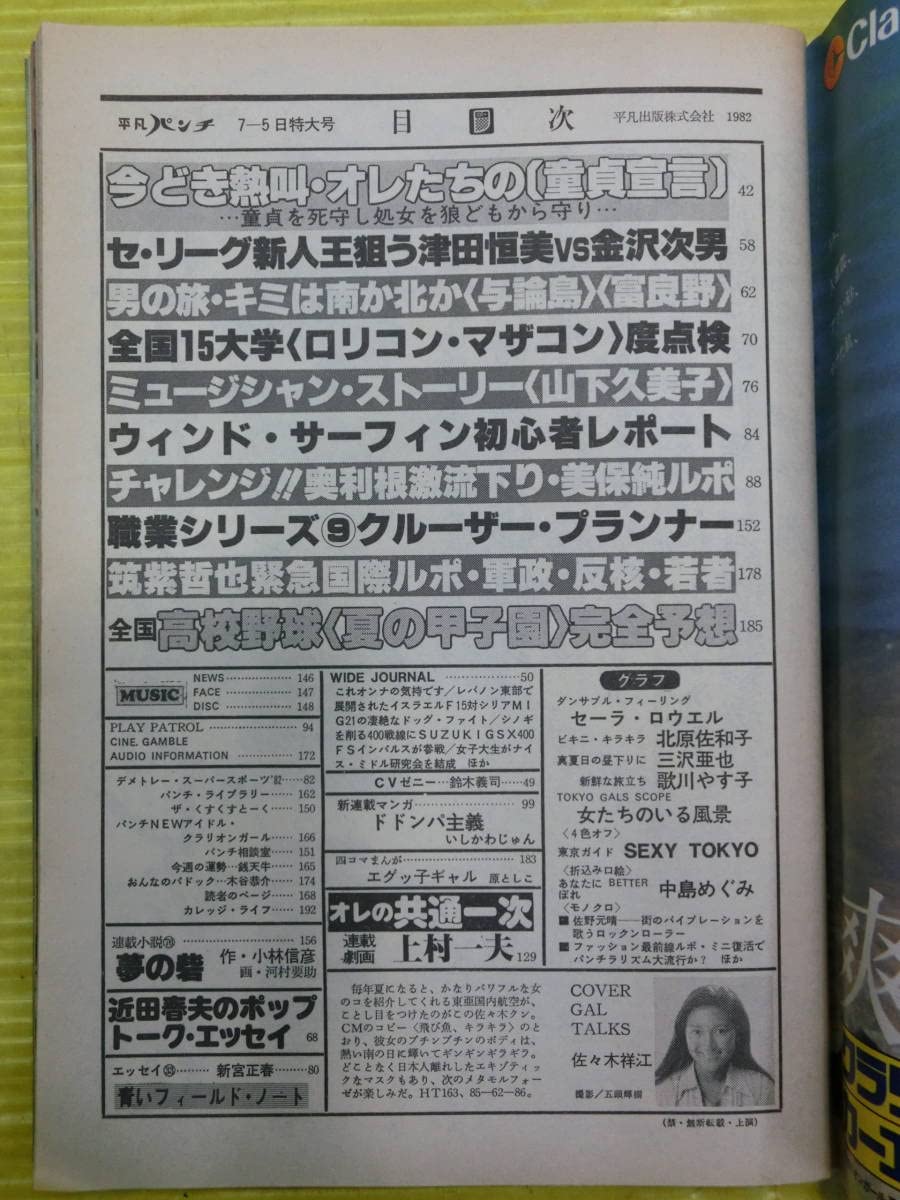 平凡パンチ 7—5日特大号 目次 平凡出版株式会社 1982
今どき熱叫・オレたちの〔童貞宣言〕 42
…童貞を死守し処女を狼どもから守り…
セ・リーグ新人王狙う津田恒美VS金沢次男 58
男の旅・キミは南か北か〈与論島〉〈富良野〉 62
全国15大学〈ロリコン・マザコン〉度点検 70
ミュージシャン・ストーリー〈山下久美子〉 76
ウィンド・サーフィン初心者レポート 84
チャレンジ!!奥利根激流下り・美保純ルポ 88
職業シリーズ⑨クルーザー・プランナー 152
筑紫哲也緊急国際ルポ・軍政・反核・若者 178
全国高校野球〈夏の甲子園〉完全予想 185
MUSIC
NEWS 146
FACE 147
DISC 148
PLAY PATROL 94
CINE. GAMBLE
AUDIO INFORMATION 172
デメトレー・スーパースポーツ'82 82
パンチ・ライブラリー 162
ザ・くすくすとーく 150
パンチNEWアイドル・
クラリオンガール 166
パンチ相談室 151
今週の運勢…銭天牛 165
おんなのパドック…木谷恭介 174
読者のページ 168
カレッジ・ライフ 192
連載小説⑳ 156
夢の砦 作・小林信彦
画・河村要助
近田春夫のポップ
トーク・エッセイ 68
エッセイ㉝ 新宮正春 80
青いフィールド・ノート
WIDE JOURNAL 50
これオンナの気持です/レバノン東部で
展開されたイスラエルF15対シリアMI
G21の凄絶なドッグ・ファイト/シノギ
を削る400戦線にSUZUKI GSX400
FSインパルスが参戦/女子大生がナイ
ス・ミドル研究会を結成 ほか
CVゼニー…鈴木義司 49
新連載マンガ 99
ドドンパ主義
いしかわじゅん
四コマまんが 183
エグッ子ギャル 原としこ
オレの共通一次
連載
劇画 上村一夫 129
グラフ
ダンサブル・フィーリング
セーラ・ロウエル
ビキニ・キラキラ 北原佐和子
真夏日の昼下りに 三沢亜也
新鮮な旅立ち 歌川やす子
TOKYO GALS SCOPE
女たちのいる風景
〈4色オフ〉
東京ガイド SEXY TOKYO
〈折込み口絵〉
あなたに BETTER
ぽれ 中島めぐみ
〈モノクロ〉
■佐野元晴——街のバイブレーションを
歌うロックンローラー
■ファッション最前線ルポ・ミニ復活で
パンチラリズム大流行か? ほか
毎年夏になると、かなりパワフルな女
のコを紹介してくれる東亜国内航空が、
ことし目をつけたのがこの佐々木クン。
CMのコピー〈飛び魚、キラキラ〉のと
おり、彼女のプチンプチンのボディは、
熱い南の日に輝いてギンギンギラギラ。
どことなく日本人離れしたエキゾティッ
クなマスクもあり、次のメタモルフォー
ゼが楽しみだ。HT163、85—62—86。
COVER
GAL
TALKS
佐々木祥江
撮影/五頭輝樹
(禁・無断転載・上演)
Cla
爽